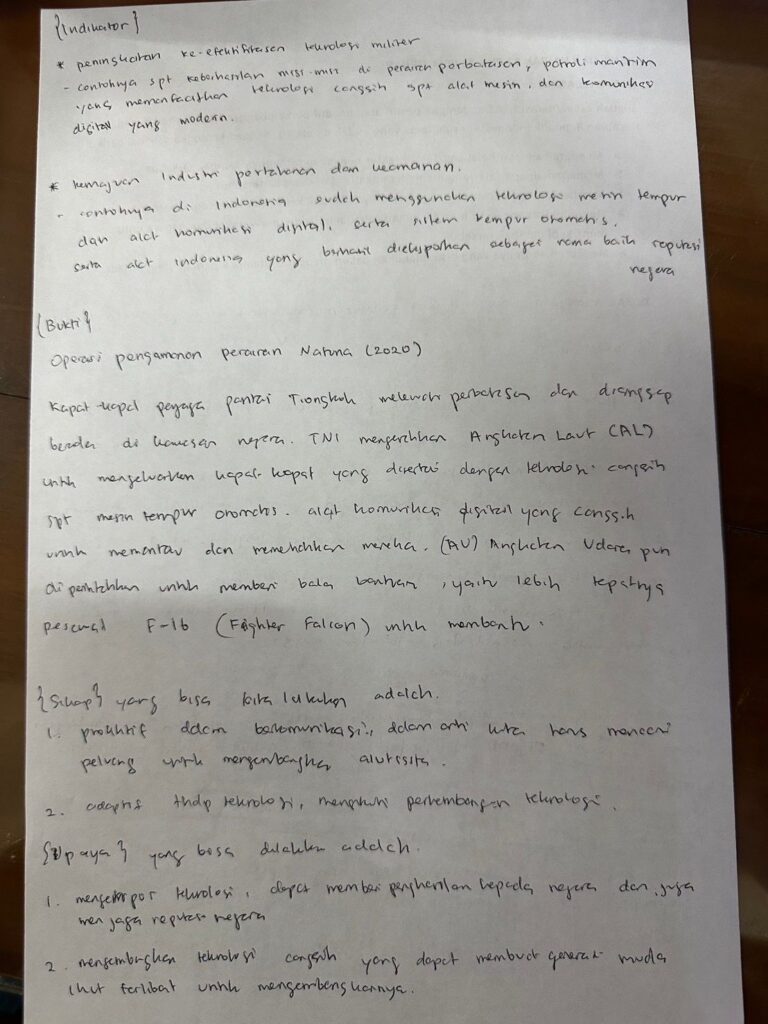 {Indikator}
* peningkatan ke-efektifitasan teknologi militer
- contohnya spt keberhasilan misi-misi di perairan perbatasan, patroli maritim
yang memanfaatkan teknologi canggih spt alat mesin, dan komunikasi
digital yang modern.
* kemajuan Industri pertahanan dan keamanan.
- contohnya di Indonesia sudah menggunakan teknologi mesin tempur
dan alat komunikasi digital, serta sistem tempur otomatis.
serta alat Indonesia yang berhasil dieksporkan sebagai nama baik reputasi
negara
{Bukti}
Operasi pengamanan perairan Natuna (2020)
Kapal-kapal penjaga pantai Tiongkok melewati perbatasan dan dianggap
berada di kawasan negara. TNI mengerahkan Angkatan Laut (AL)
untuk mengeluarkan kapal-kapal yang disertai dengan teknologi canggih
spt mesin tempur otomatis. alat komunikasi digital yang canggih
untuk memantau dan mereka. (AU) Angkatan Udara pun
di perintahkan untuk memberi bala bantuan, yaitu lebih tepatnya
pesawat F-16 (Fighter Falcon) untuk membantu.
{Sikap} yang bisa kita lakukan adalah.
1. produktif dalam berkomunikasi, dalam arti kita harus mencari
peluang untuk mengembangkan alutsista.
2. adaptif thdp teknologi, mengikuti perkembangan teknologi.
{Upaya} yang bisa dilakukan adalah.
1. mengekspor teknologi, dapat memberi penghasilan kepada negara dan juga
menjaga reputasi negara
2. mengembangkan teknologi canggih yang dapat membuat generasi muda
ikut terlibat untuk mengembangkannya.